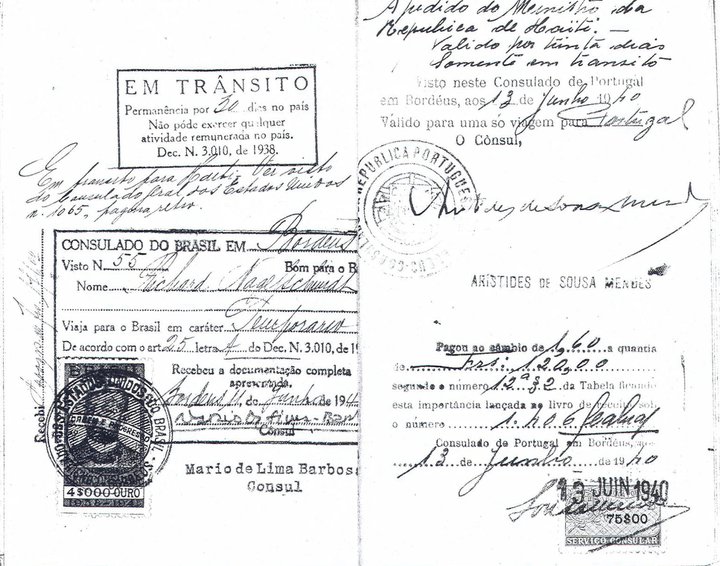 EM TRÂNSITO
Permanência por 30 dies no país
Não póde exercer qualquer
atividade remunerada no país.
Dec. N. 3.010, de 1938.
Em transito para Haiti. Ver visto
do Consulado Geral dos Estados Unidos
n. 1065, pagina retro.
CONSULADO DO BRASIL EM Bordeus
Visto N. 55 Bom para o B
Nome Richard
Viaja para o Brasil em caráter Temporario
De acordo com o art. 25 letra A do Dec. N. 3.010, de 19
Recebeu a documentação completa
apresentada.
Bordeus Junho 194
Consul
Recebi
CONSULADO DOS ESTADOS UNIDOS DO BRASIL
BRASIL
4$000 OURO
Mario de Lima Barbosa
Consul
A pedido do Ministro da
Republica de Haiti.
Valido por trinta dias
Somente em transito
Visto neste Consulado de Portugal
em Bordéus, aos 13 de Junho 1940
Válido para uma só viagem para Portugal
O Cônsul,
REPÚBLICA PORTUGUESA
Aristides de Sousa Mendes
ARISTIDES DE SOUSA MENDES
Pagou ao câmbio de 1,60 a quantia
de 12,00
segundo o número da Tabela ficando
esta importância lançada no livro de receita sob
o número
Consulado de Portugal em Bordéus, aos
13 de Junho de 1940
13 JUIN 1940
75$00
SERVIÇO CONSULAR